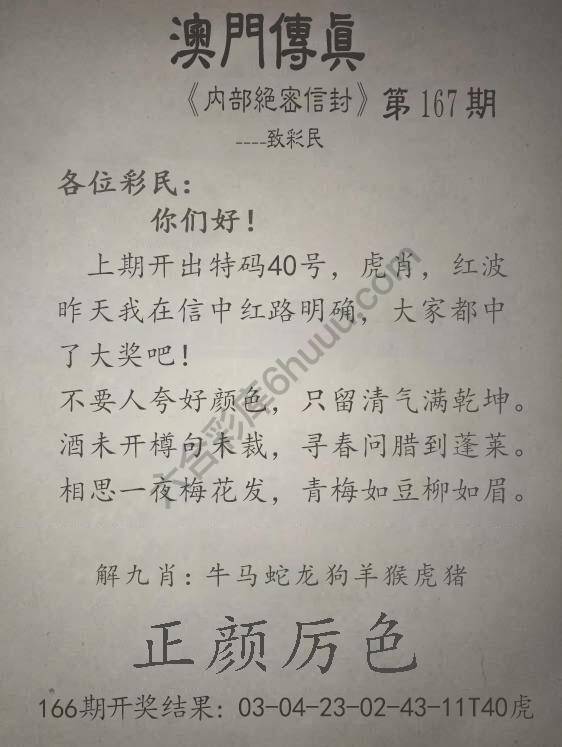 澳門傳真
《内部絕密信封》第167期
----致彩民
各位彩民：
你们好！
上期开出特码40号，虎肖，红波
昨天我在信中红路明确，大家都中
了大奖吧！
不要人夸好颜色，只留清气满乾坤。
酒未开樽句未裁，寻春问腊到蓬莱。
相思一夜梅花发，青梅如豆柳如眉。
六合彩库6huuu.com
解九肖：牛马蛇龙狗羊猴虎猪
正颜厉色
166期开奖结果：03-04-23-02-43-11T40虎